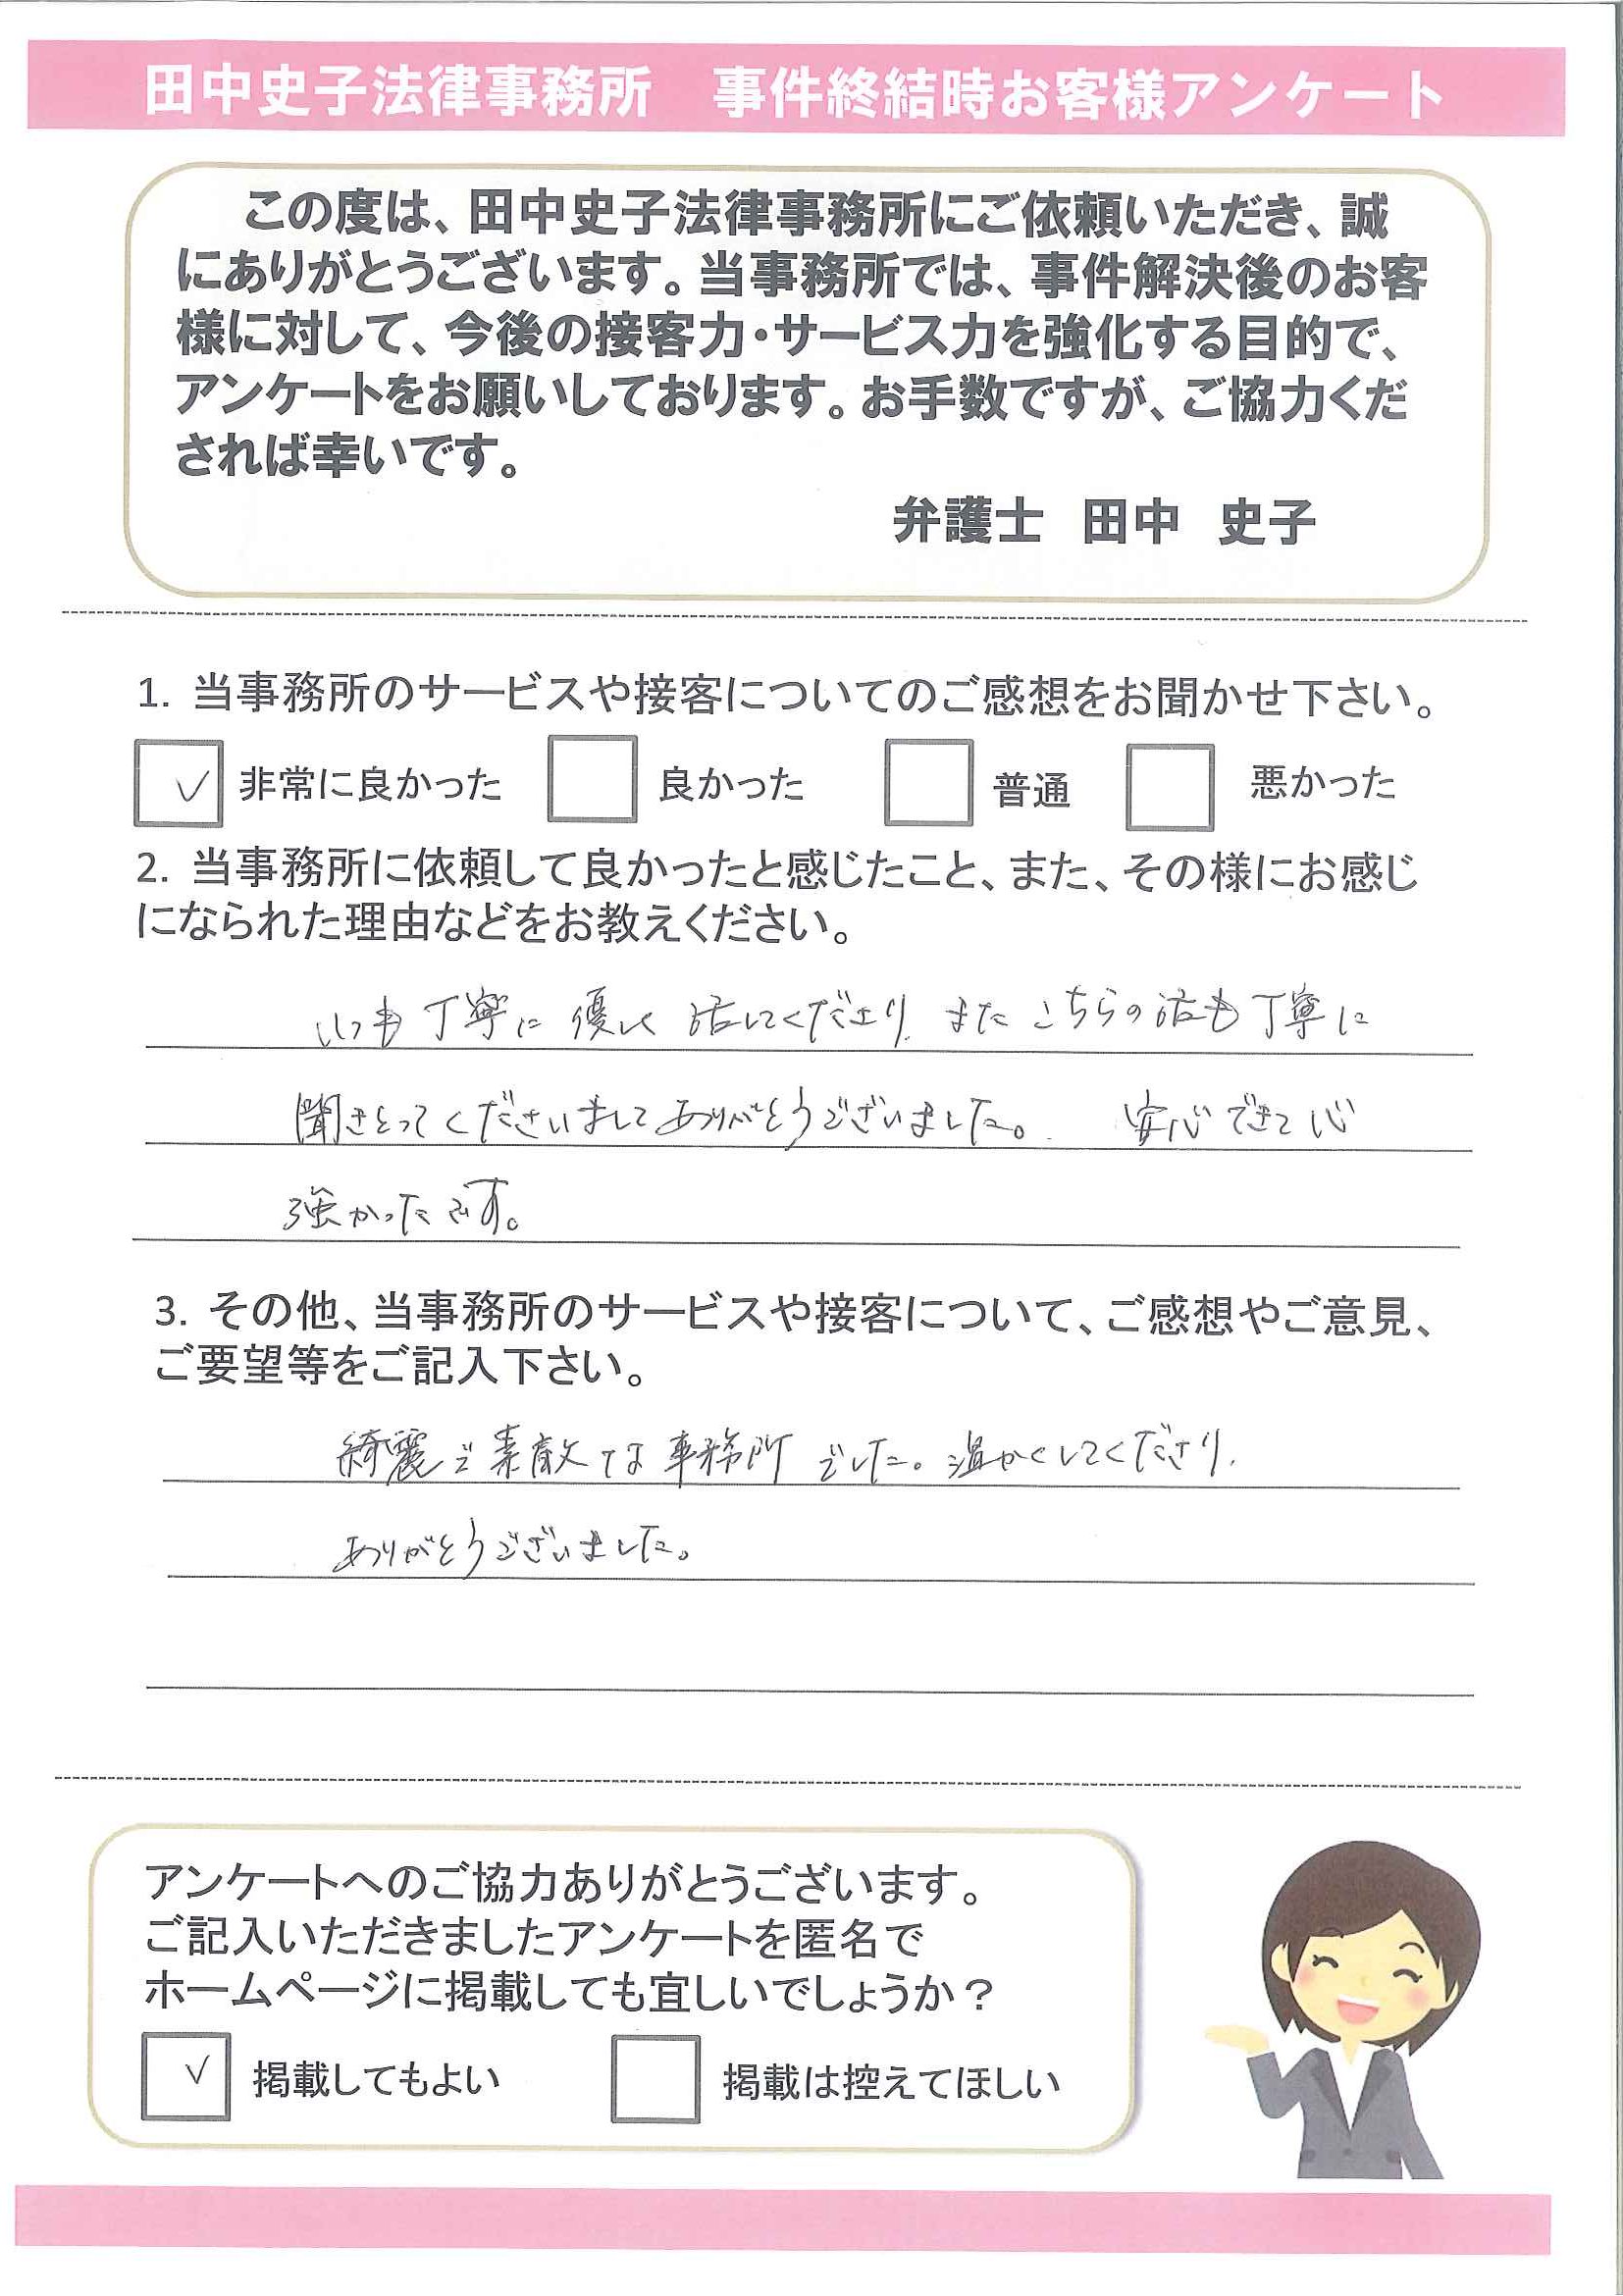 田中史子法律事務所　事件終結時お客様アンケート
この度は、田中史子法律事務所にご依頼いただき、誠
にありがとうございます。当事務所では、事件解決後のお客
様に対して、今後の接客力・サービス力を強化する目的で、
アンケートをお願いしております。お手数ですが、ご協力くだ
されば幸いです。
弁護士　田中　史子
1. 当事務所のサービスや接客についてのご感想をお聞かせ下さい。
✓ 非常に良かった　良かった　普通　悪かった
2. 当事務所に依頼して良かったと感じたこと、また、その様にお感じ
になられた理由などをお教えください。
いつも丁寧に優しく話してくださり、またこちらの話も丁寧に
聞きとってくださいましてありがとうございました。　安心できて心
強かったです。
3. その他、当事務所のサービスや接客について、ご感想やご意見、
ご要望等をご記入下さい。
綺麗で素敵な事務所でした。温かくしてくださり、
ありがとうございました。
アンケートへのご協力ありがとうございます。
ご記入いただきましたアンケートを匿名で
ホームページに掲載しても宜しいでしょうか？
✓ 掲載してもよい　掲載は控えてほしい